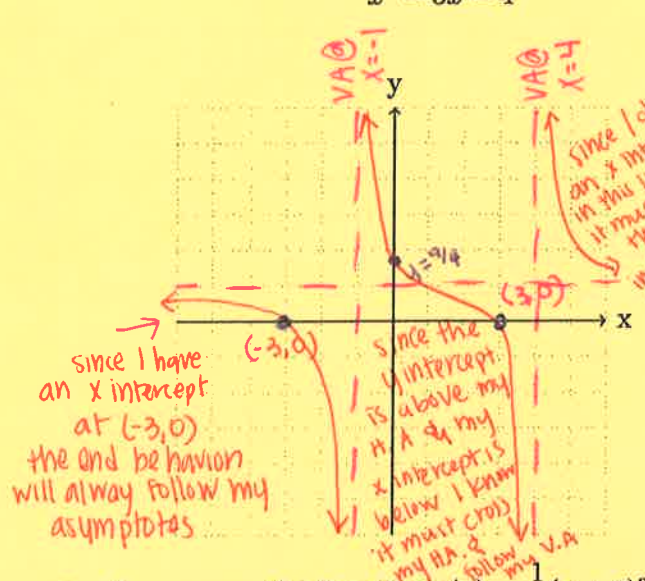 VA@
x=-1
VA@
x=4
y
since I
an x in
in this
it mus
th
in
y=9/4
(3,0)
x
(-3,0)
since I have
an x intercept
at (-3,0)
the end behavion
will alway follow my
asymptotes
since the
y intercept
is above my
H.A & my
x intercept is
below I know
it must cross
my HA. &
follow
my V.A
1